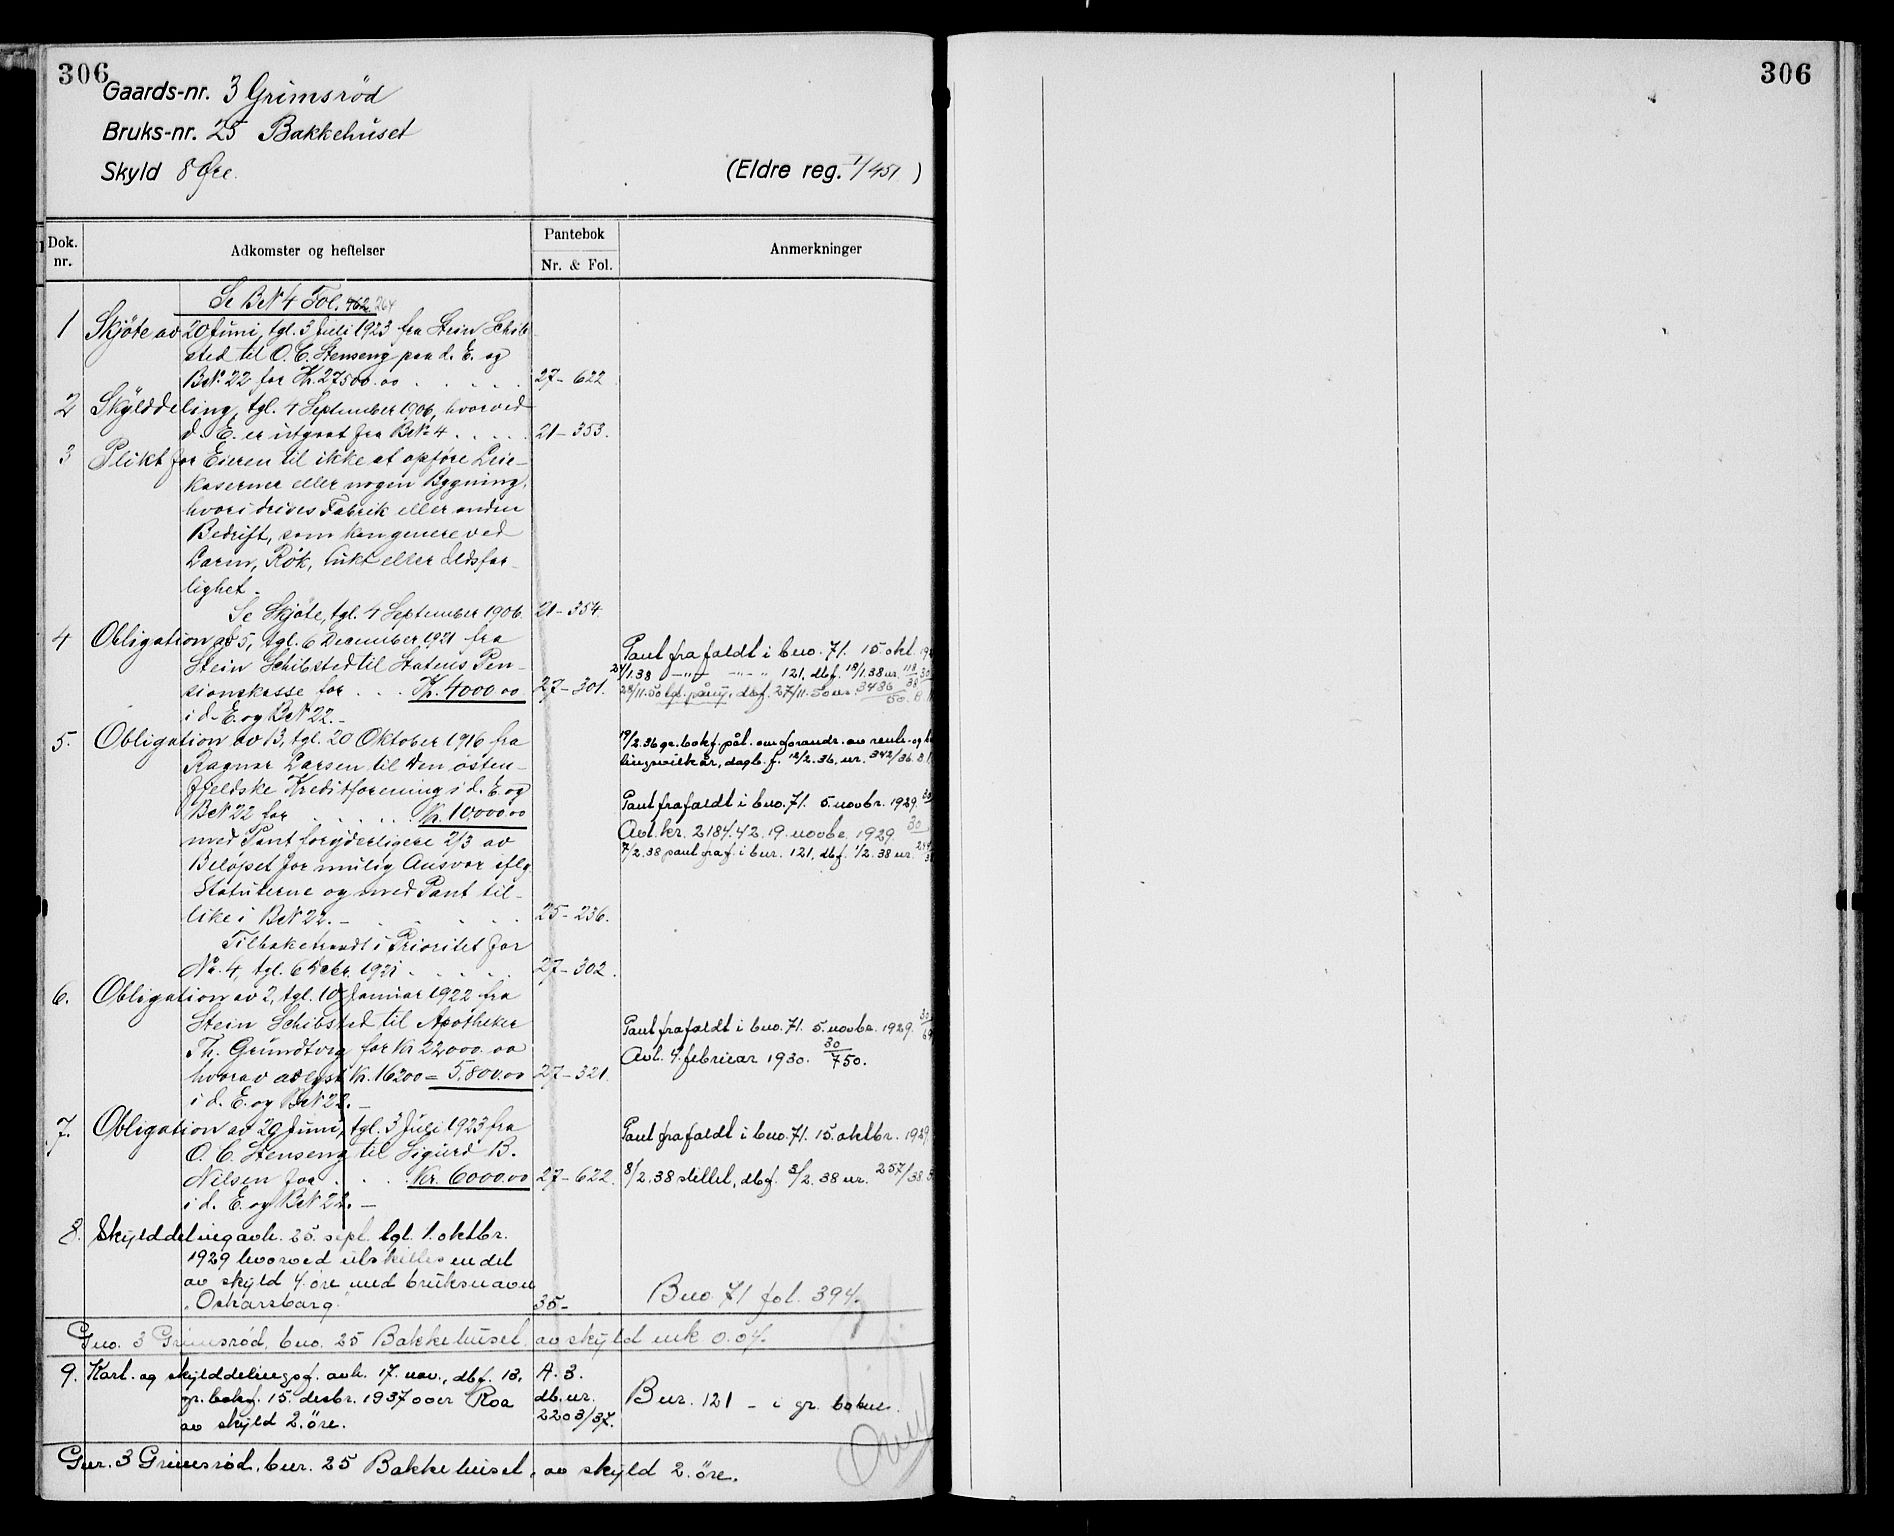 306
Gaards-nr. 3 Grimsrød
Bruks-nr. 25 Bakkehuset
Skyld 8 Øre.
(Eldre reg. I/451 )
Dok. nr.
Adkomster og heftelser
Pantebok
Nr. & Fol.
Anmerkninger
Se BN 4 Fol. 462 264
1 Skjøte av 20 Juni, tgl. 3 Juli 1923 fra Stein Schib-
sted til O. C. Stenseng paa d. E. og
BN. 22 for Kr. 27500.00 . . . . . 27-622.
2 Skylddeling, tgl. 4 September 1906, hvorved
d. E. er utgaat fra BN 4 . . . . 21-353.
3 Plikt for Eieren til ikke at opføre Leie-
kaserner eller nogen Bygning,
hvori drives Fabrik eller anden
Bedrift, som kan genere ved
Larm, Røk, Lukt eller Ildsfar-
lighet.
Se Skjøte, tgl. 4 September 1906. 21-354.
4 Obligation av 5, tgl. 6 December 1921 fra
Stein Schibsted til Statens Pen-
sionskasse for . . . Kr. 4000.00 27-301.
i d. E. og BN 22.-
Pant frafaldt i bno. 71. 15. okt.
24/1.38 -"- -"- " 121, dbf. 18/1.38 nr. 118/38
28/11.50 lyst på ny, dbf. 27/11.50 nr. 3436/50.
5. Obligation av 13, tgl. 20 Oktober 1916 fra
Ragnar Larsen til Den østen-
fjeldske Kreditforening i d. E. og
BN 22 for . . . . . Kr. 10000.00
med Pant for yderligere 2/3 av
Beløpet for mulig Ansvar eflg.
Statuterne og med Pant til-
like i BN 22.- . . . . 25-236.
19/2.36 gr. bokf. pål. om forandr. av rente- og
lingsvilkår, dagb. f. 12/2.36, nr. 342/36.
Pant frafaldt i bno. 71. 5. novbr. 1929.
Avl. kr. 2184.42. 19. novbr. 1929.
7/2.38 pant fraf. i bnr. 121, dbf. 1/2.38 nr.
Tilbaketraadt i Prioritet for
No. 4, tgl. 6 Debr. 1921 . . . . . 27-302.
6. Obligation av 2, tgl. 10 Januar 1922 fra
Stein Schibsted til Apotheker
Th. Grundtvig for Kr 22000.00
hvorav avlyst Kr. 16200 = 5.800.00 27-321.
i d. E. og BN 22.-
Pant frafaldt i bno. 71. 5. novbr. 1929.
Avl. 4. februar 1930. 30/750.
7. Obligation av 20 Juni, tgl. 3 Juli 1923 fra
O. C. Stenseng til Sigurd B.
Nilsen for . . . . Kr. 6000.00 27-622.
i d. E. og BN 22.-
Pant frafaldt i bno. 71. 15. oktbr. 1929
8/2.38 slettet, dbf. 3/2.38 nr. 257/38.
8. Skylddeling avh. 25. sept. tgl. 1. oktbr.
1929 hvorved utskilles en del
av skyld 4 øre med bruksnavn
"Oskarsborg." 35-
Bno. 71 fol. 394.
Gno. 3 Grimsrød, bno. 25 Bakkehuset av skyld mk 0.04.
9. Kart- og skylddelingsf. avh. 17. nov., dbf. 13,
gr. bokf. 15. desbr. 1937 over Roa
av skyld 2 øre.
A. 3.
db. nr.
2203/37.
Bnr. 121 - i gr. boken.
Gnr. 3 Grimsrød, bnr. 25 Bakkehuset, av skyld 2 øre.
306